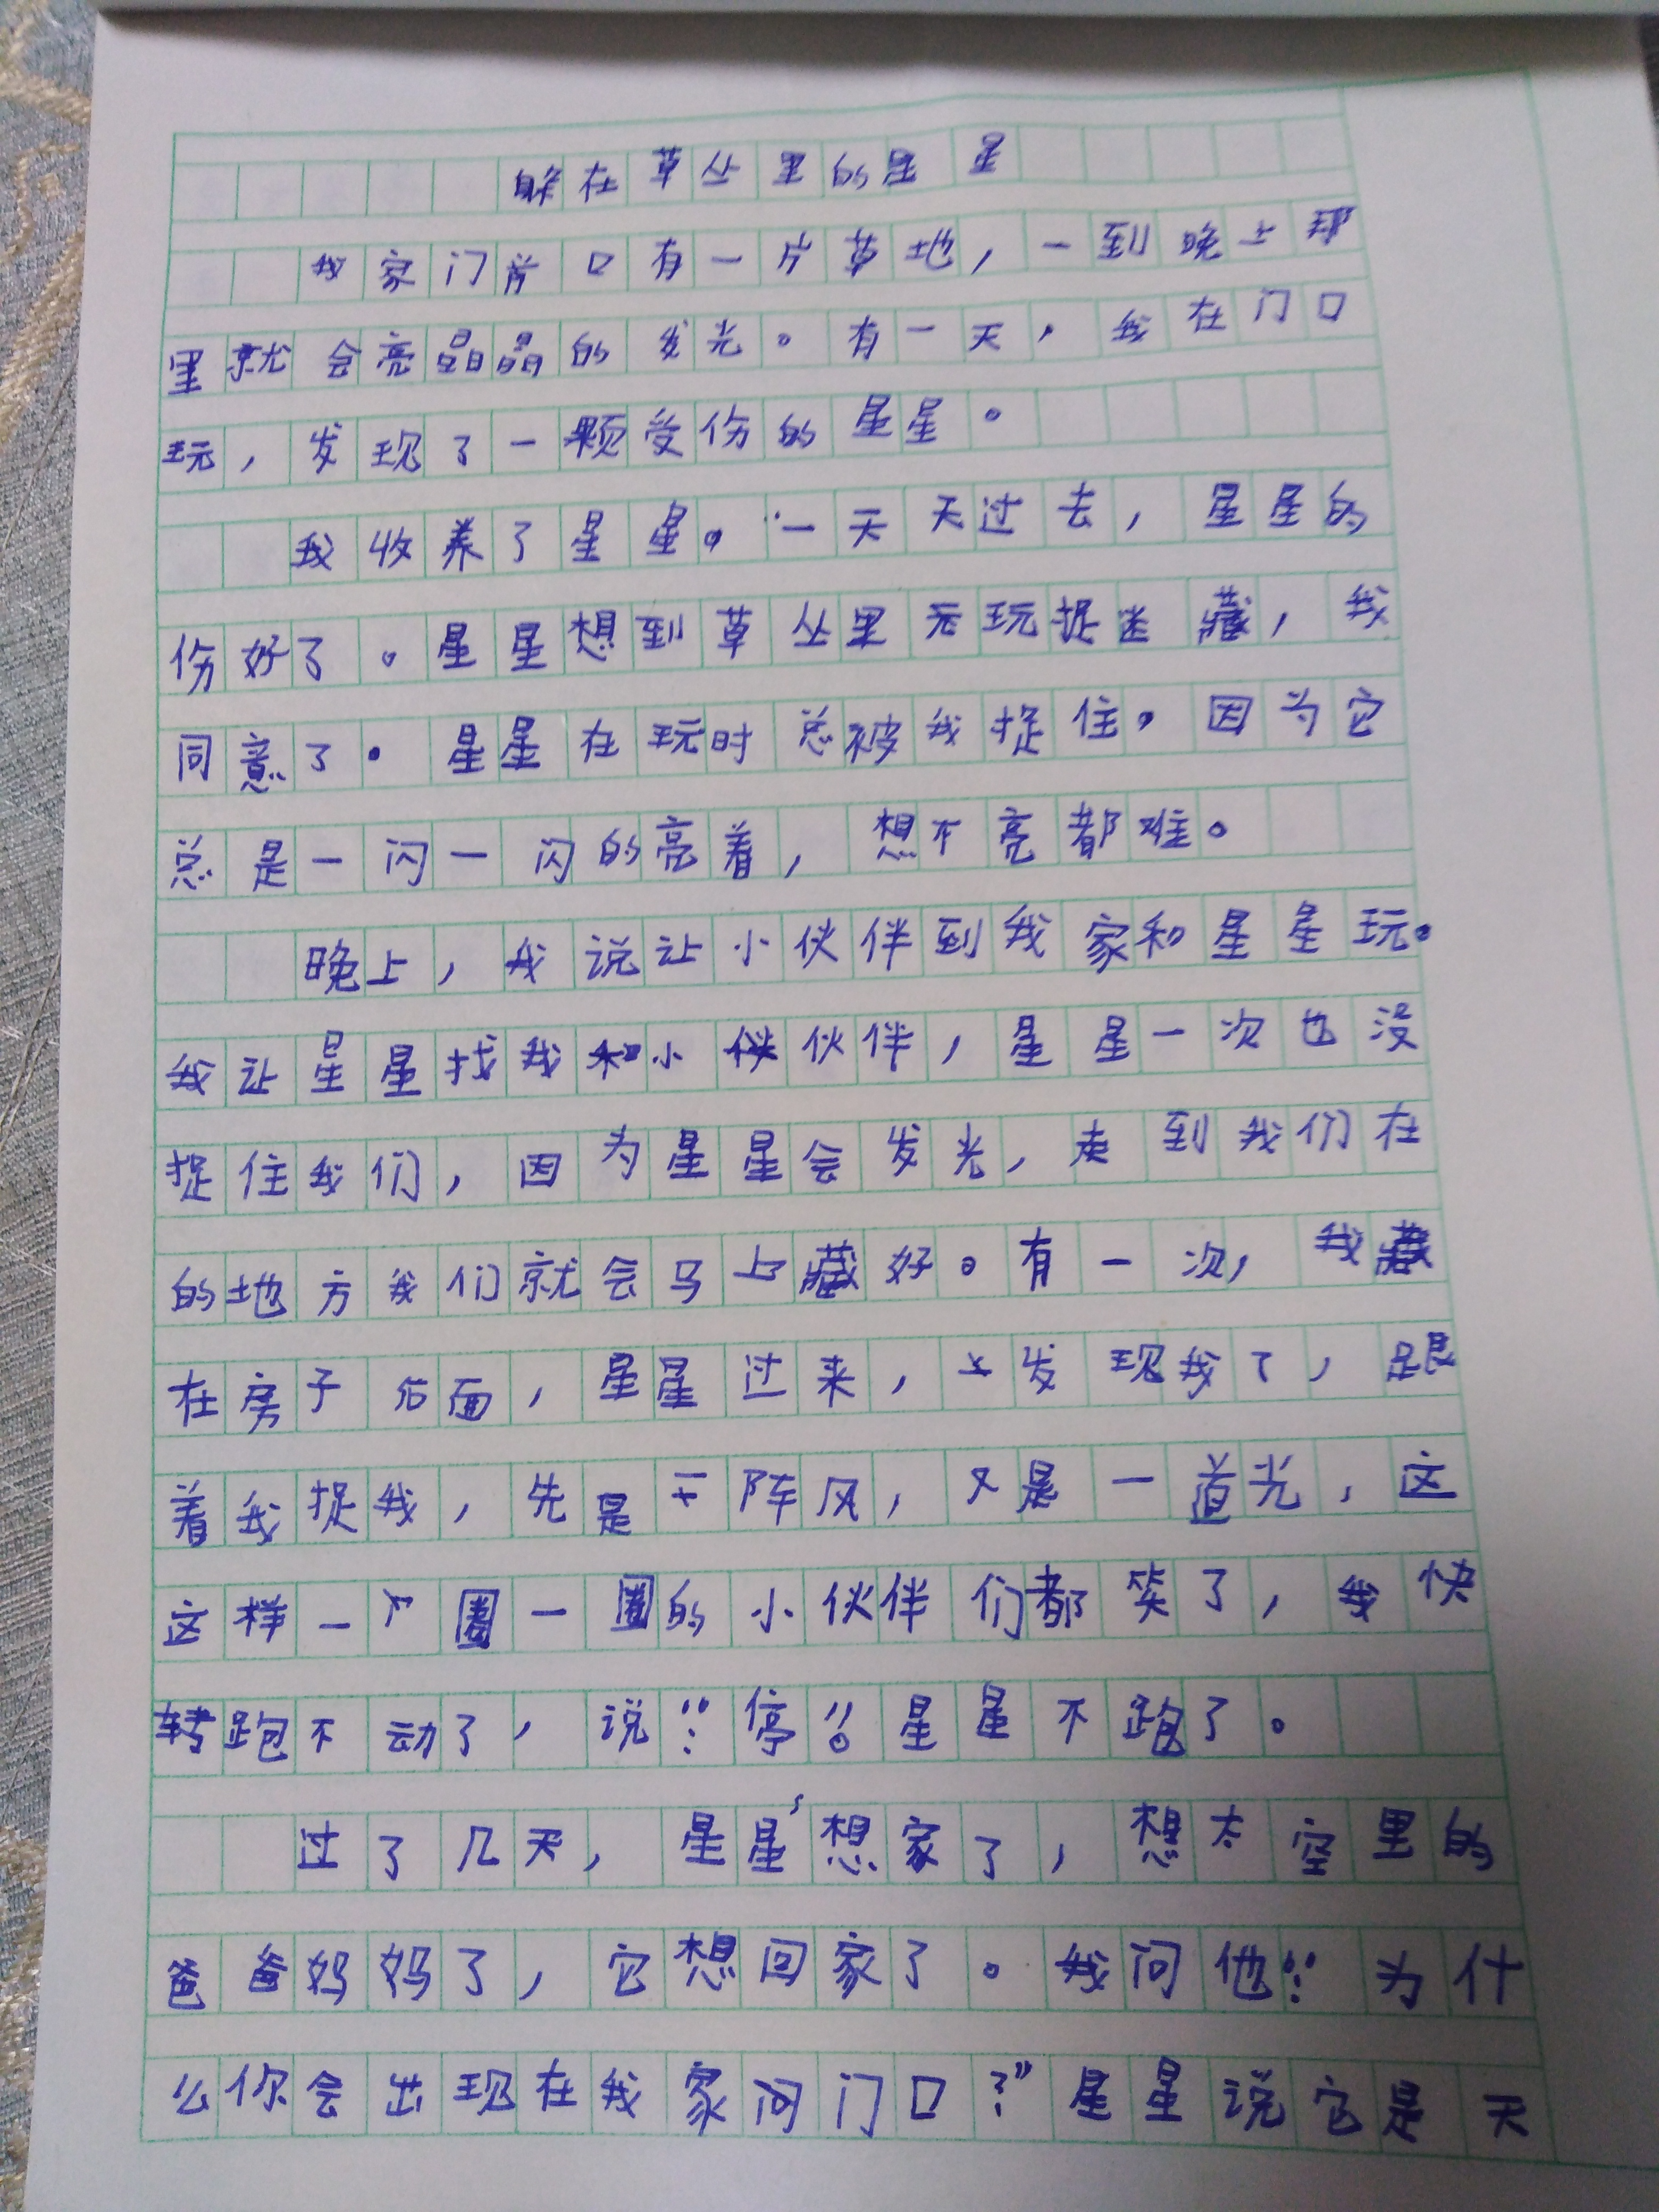 躲在草丛里的星星
我家门前口有一片草地，一到晚上那
里就会亮晶晶的发光。有一天，我在门口
玩，发现了一颗受伤的星星。
我收养了星星。一天天过去，星星的
伤好了。星星想到草丛里去玩捉迷藏，我
同意了。星星在玩时总被我捉住，因为它
总是一闪一闪的亮着，想不亮都难。
晚上，我说让小伙伴到我家和星星玩。
我让星星找我和小伙伴，星星一次也没
捉住我们，因为星星会发光，走到我们在
的地方我们就会马上藏好。有一次，我藏
在房子后面，星星过来，上发现我了，跟
着我捉我，先是一阵风，又是一道光，这
这样一圈一圈的小伙伴们都笑了，我快
转跑不动了，说：“停”。星星不跑了。
过了几天，星星想家了，想太空里的
爸爸妈妈了，它想回家了。我问他：“为什
么你会出现在我家门口？”星星说它是天